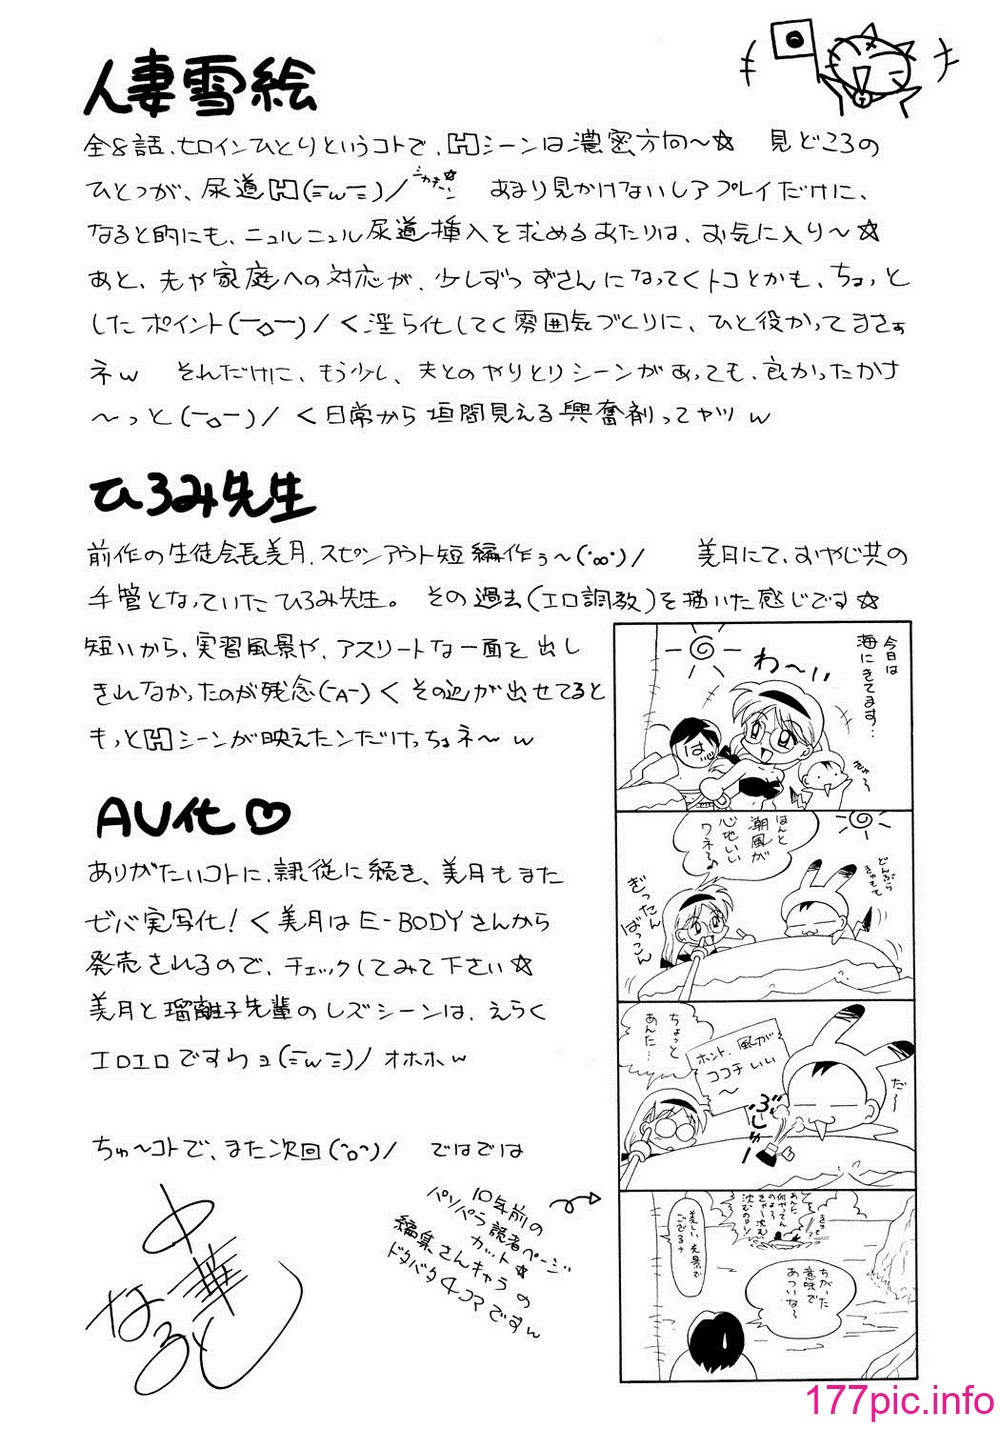 人妻雪絵
全8話、ヒロインひとりというコトで、Hシーンは濃密方向～☆　見どころの
ひとつが、尿道H(ニwニ)/　あまり見かけないレアプレイだけに、
なると的にも、ニュルニュル尿道挿入を求めるあたりは、お気に入り～☆
あと、夫や家庭への対応が、少しずつずさんになってくトコとかも、ちょっと
したポイント(￣o￣)/く淫ら化してく雰囲気づくりに、ひと役かってまさぁ
ネw　それだけに、もう少し、夫とのやりとりシーンがあっても、良かったかナ
～っと(￣o￣)/く日常から垣間見える興奮剤ってヤツw
ひろみ先生
前作の生徒会長美月、スピンアウト短編作ぅ～(°∞°)/　美月にて、おやじ共の
手管となっていたひろみ先生。その過去(エロ調教)を描いた感じです☆
短いから、実習風景や、アスリートな一面を出し
きれなかったのが残念(￣A￣)くその辺が出せてると
もっとHシーンが映えたンだけっちょネ～w
AV化♡
ありがたいコトに、隷従に続き、美月もまた
ゼバ実写化!く美月はE-BODYさんから
発売されるので、チェックしてみて下さい☆
美月と瑠離子先輩のレズシーンは、えらく
エロエロですわョ(ニwニ)/オホホw
ちゅ～コトで、また次回(^o^)/　ではでは
中華
なると
10年前の
パソパラ読者ページ
カット☆
編集さんキャラの
ドタバタ4コマですw
今日は
海にきてます…
わ～い
は～い
ほんと
潮風が
心地いい
ワネる
どんぶら
ぎったん
ばっこん
ちょっと
あんた…
ホント、風が
ココチいい
～
だ～
ぶしゅー
美しい光景で
ござるナ
あんた
何やってん
のよ～
きゃー沈む
沈むのォ!
ちがいた
意味で
あついな～
177pic.info